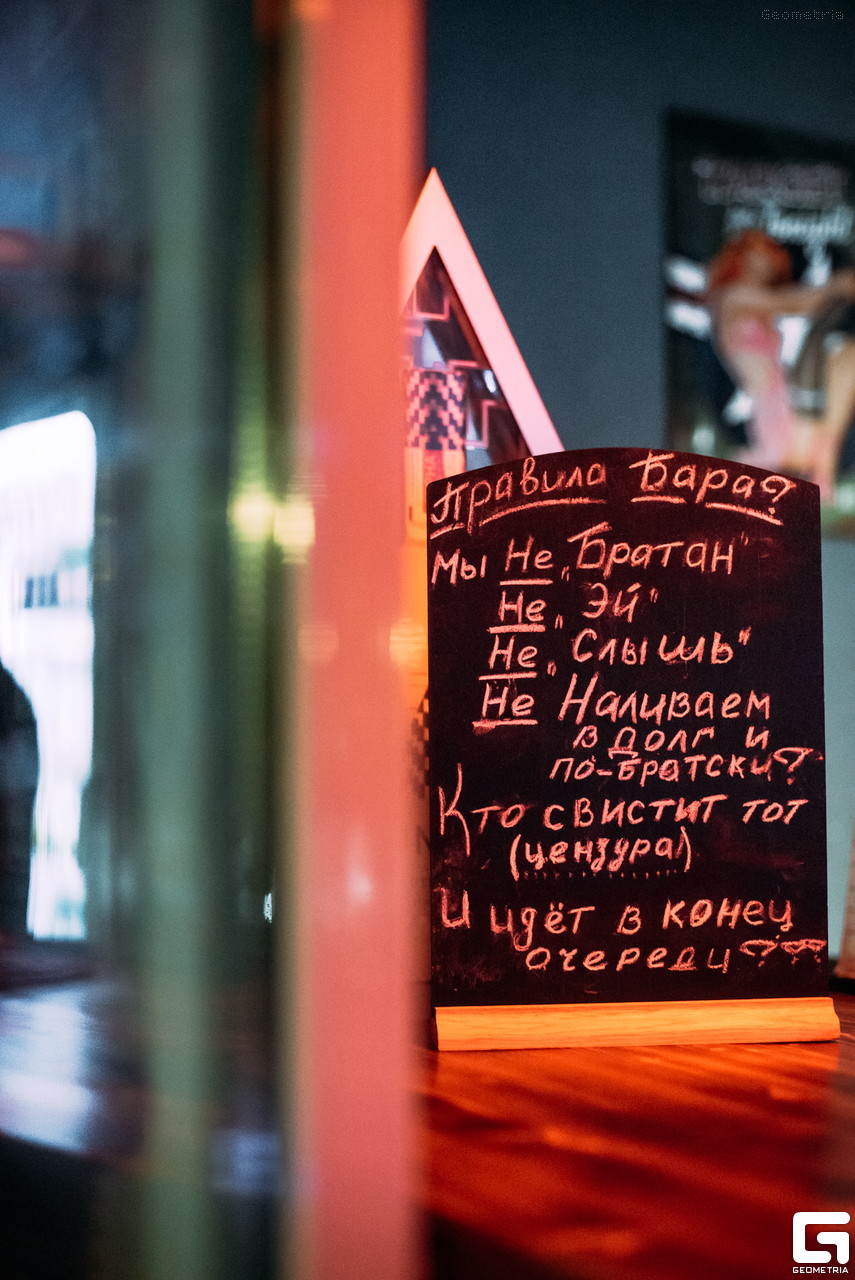 Geometria
Правила Бара?
Мы Не „Братан"
Не „Эй"
Не „Слышь"
Не Наливаем
в долг и
по-братски?
Кто свистит тот
(цензура)
И идёт в конец
очереди?
GEOMETRIA